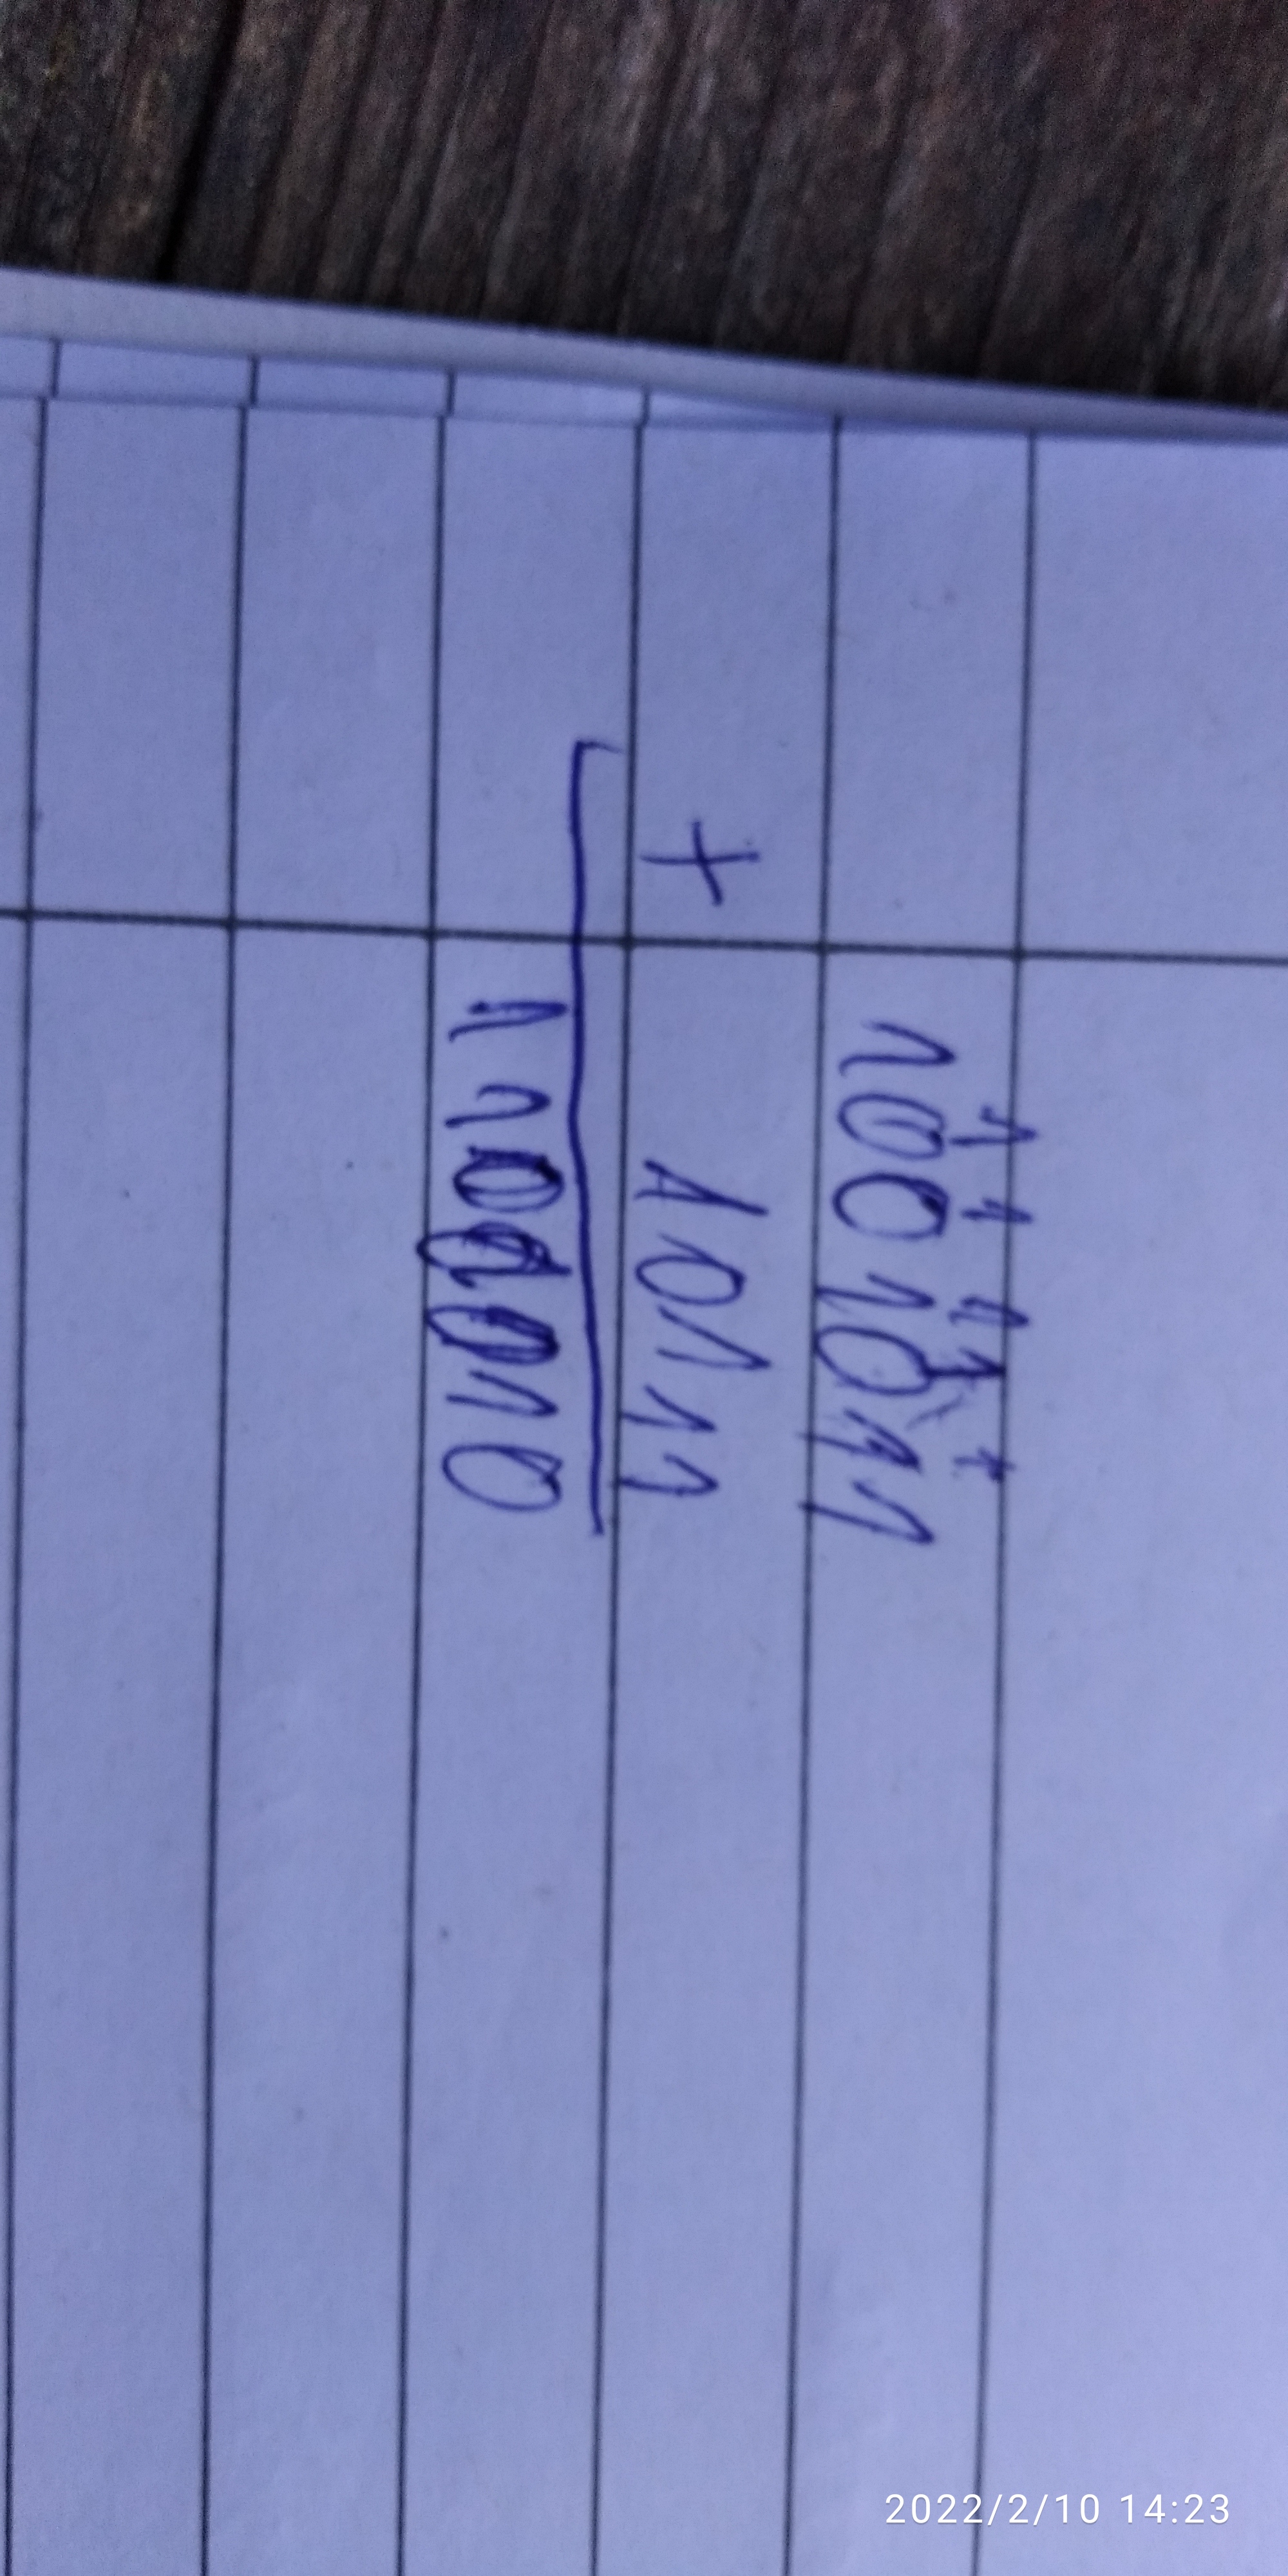 1 1 1 1 1
1001011
+ 10111
1100010
2022/2/10 14:23